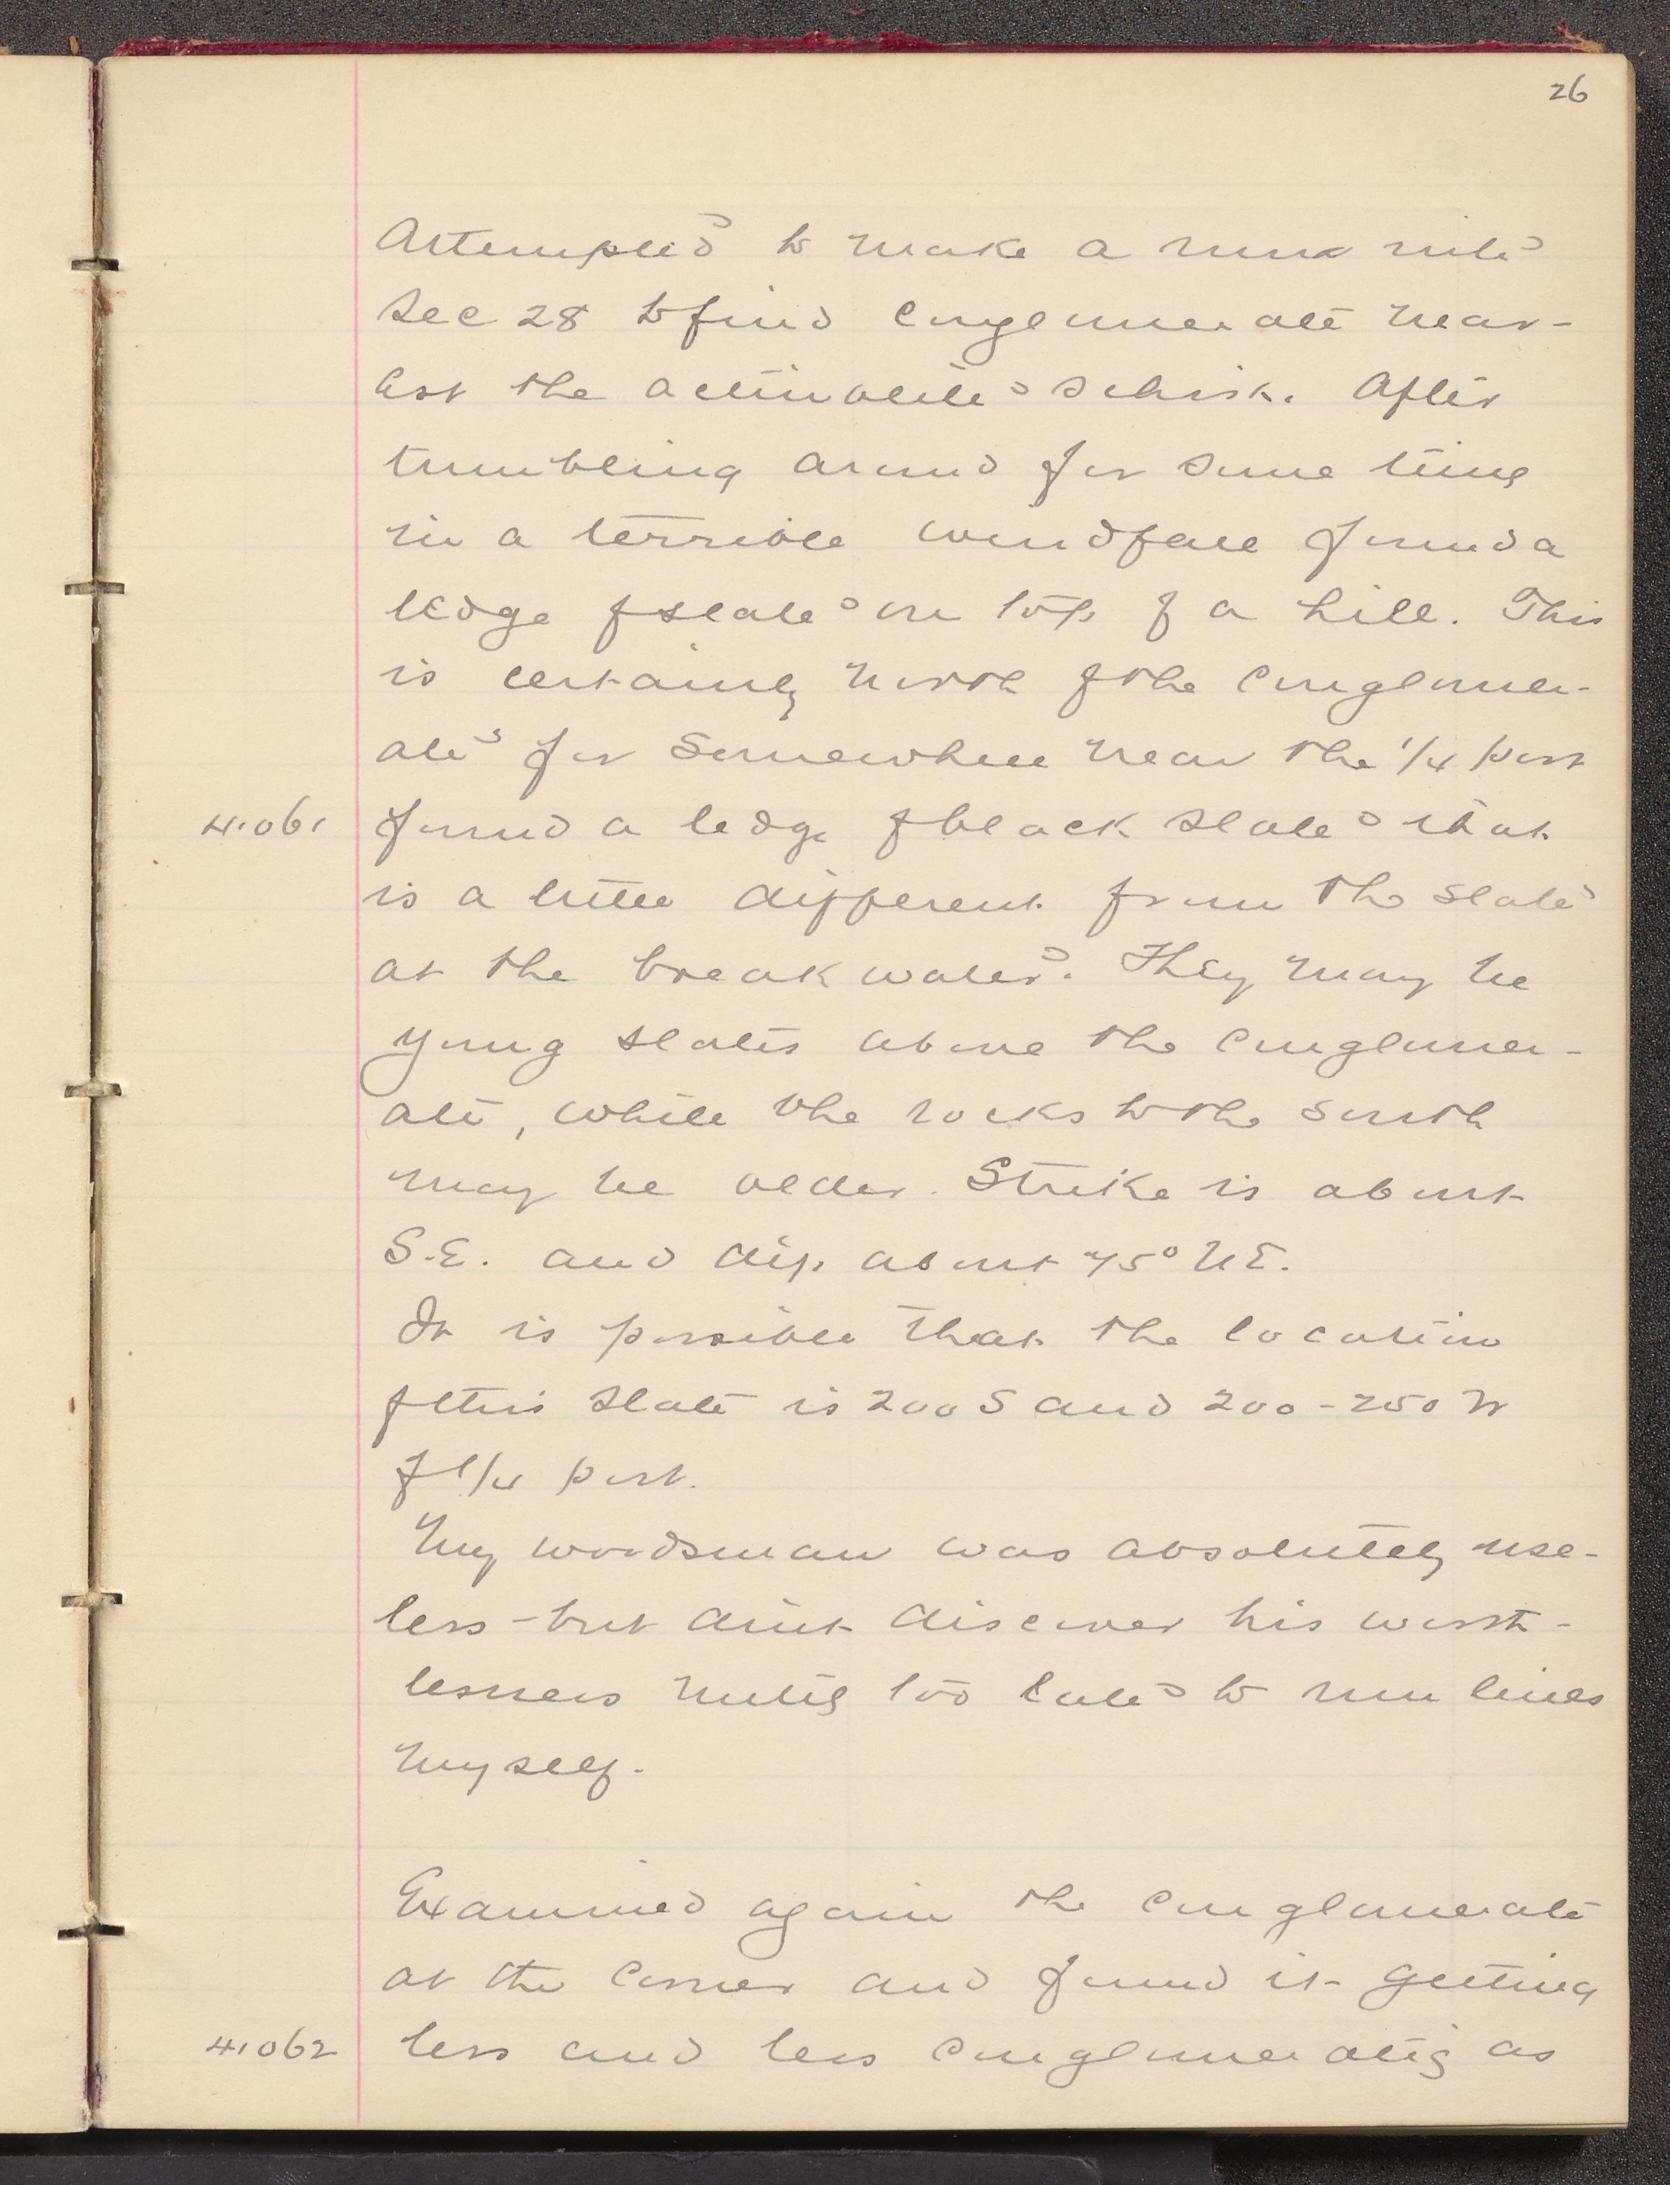 26
Attempted to make a run into
Sec 28 to find conglomerate near-
est the actinolite schist. After
tumbling around for some time
in a terrible windfall found a
ledge of slate on top of a hill. This
is certainly north of the conglomer-
ate for somewhere near the 1/4 post
41061 found a ledge of black slate that
is a little different from the slate
at the breakwater. They may be
young slates above the conglomer-
ate, while the rocks to the south
may be older. Strike is about
S.E. and dip about 75° NE.
It is possible that the location
of this slate is 200 S and 200-250 W
of 1/4 post.
My woodsman was absolutely use-
less - but didn't discover his worth-
lessness until too late to run lines
myself.
Examined again the conglomerate
at the corner and found it getting
41062 less and less conglomeratic as